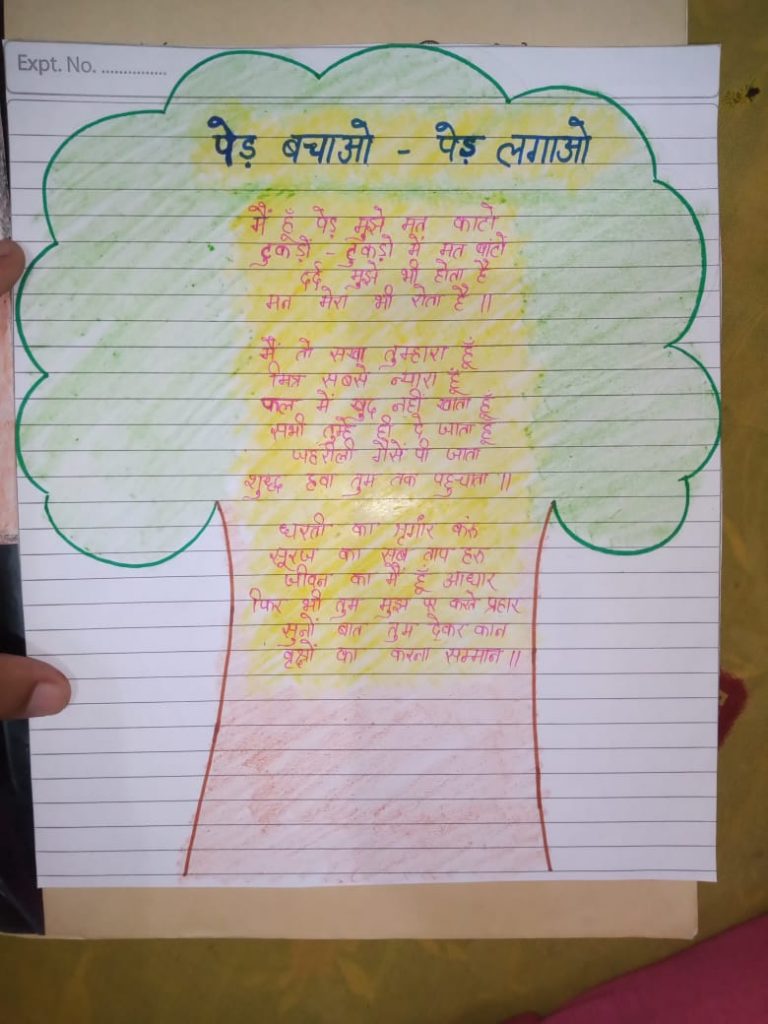 Expt. No. ...............
पेड़ बचाओ - पेड़ लगाओ
मैं हूँ पेड़ मुझे मत काटो
टुकड़ो - टुकड़ो में मत बांटो
दर्द मुझे भी होता है
मन मेरा भी रोता है ॥
मैं तो सखा तुम्हारा हूँ
मित्र सबसे न्यारा हूँ
फल मैं खुद नही खाता हूँ
सभी तुम्हे ही दे जाता हूँ
जहरीली गैसें पी जाता
शुध्द हवा तुम तक पहुचाता ॥
धरती का श्रृगांर करू
सूरज का सब ताप हरु
जीवन का मैं हूँ आधार
फिर भी तुम मुझ पर करते प्रहार
सुनों बात तुम देकर कान
वृक्षों का करना सम्मान ॥